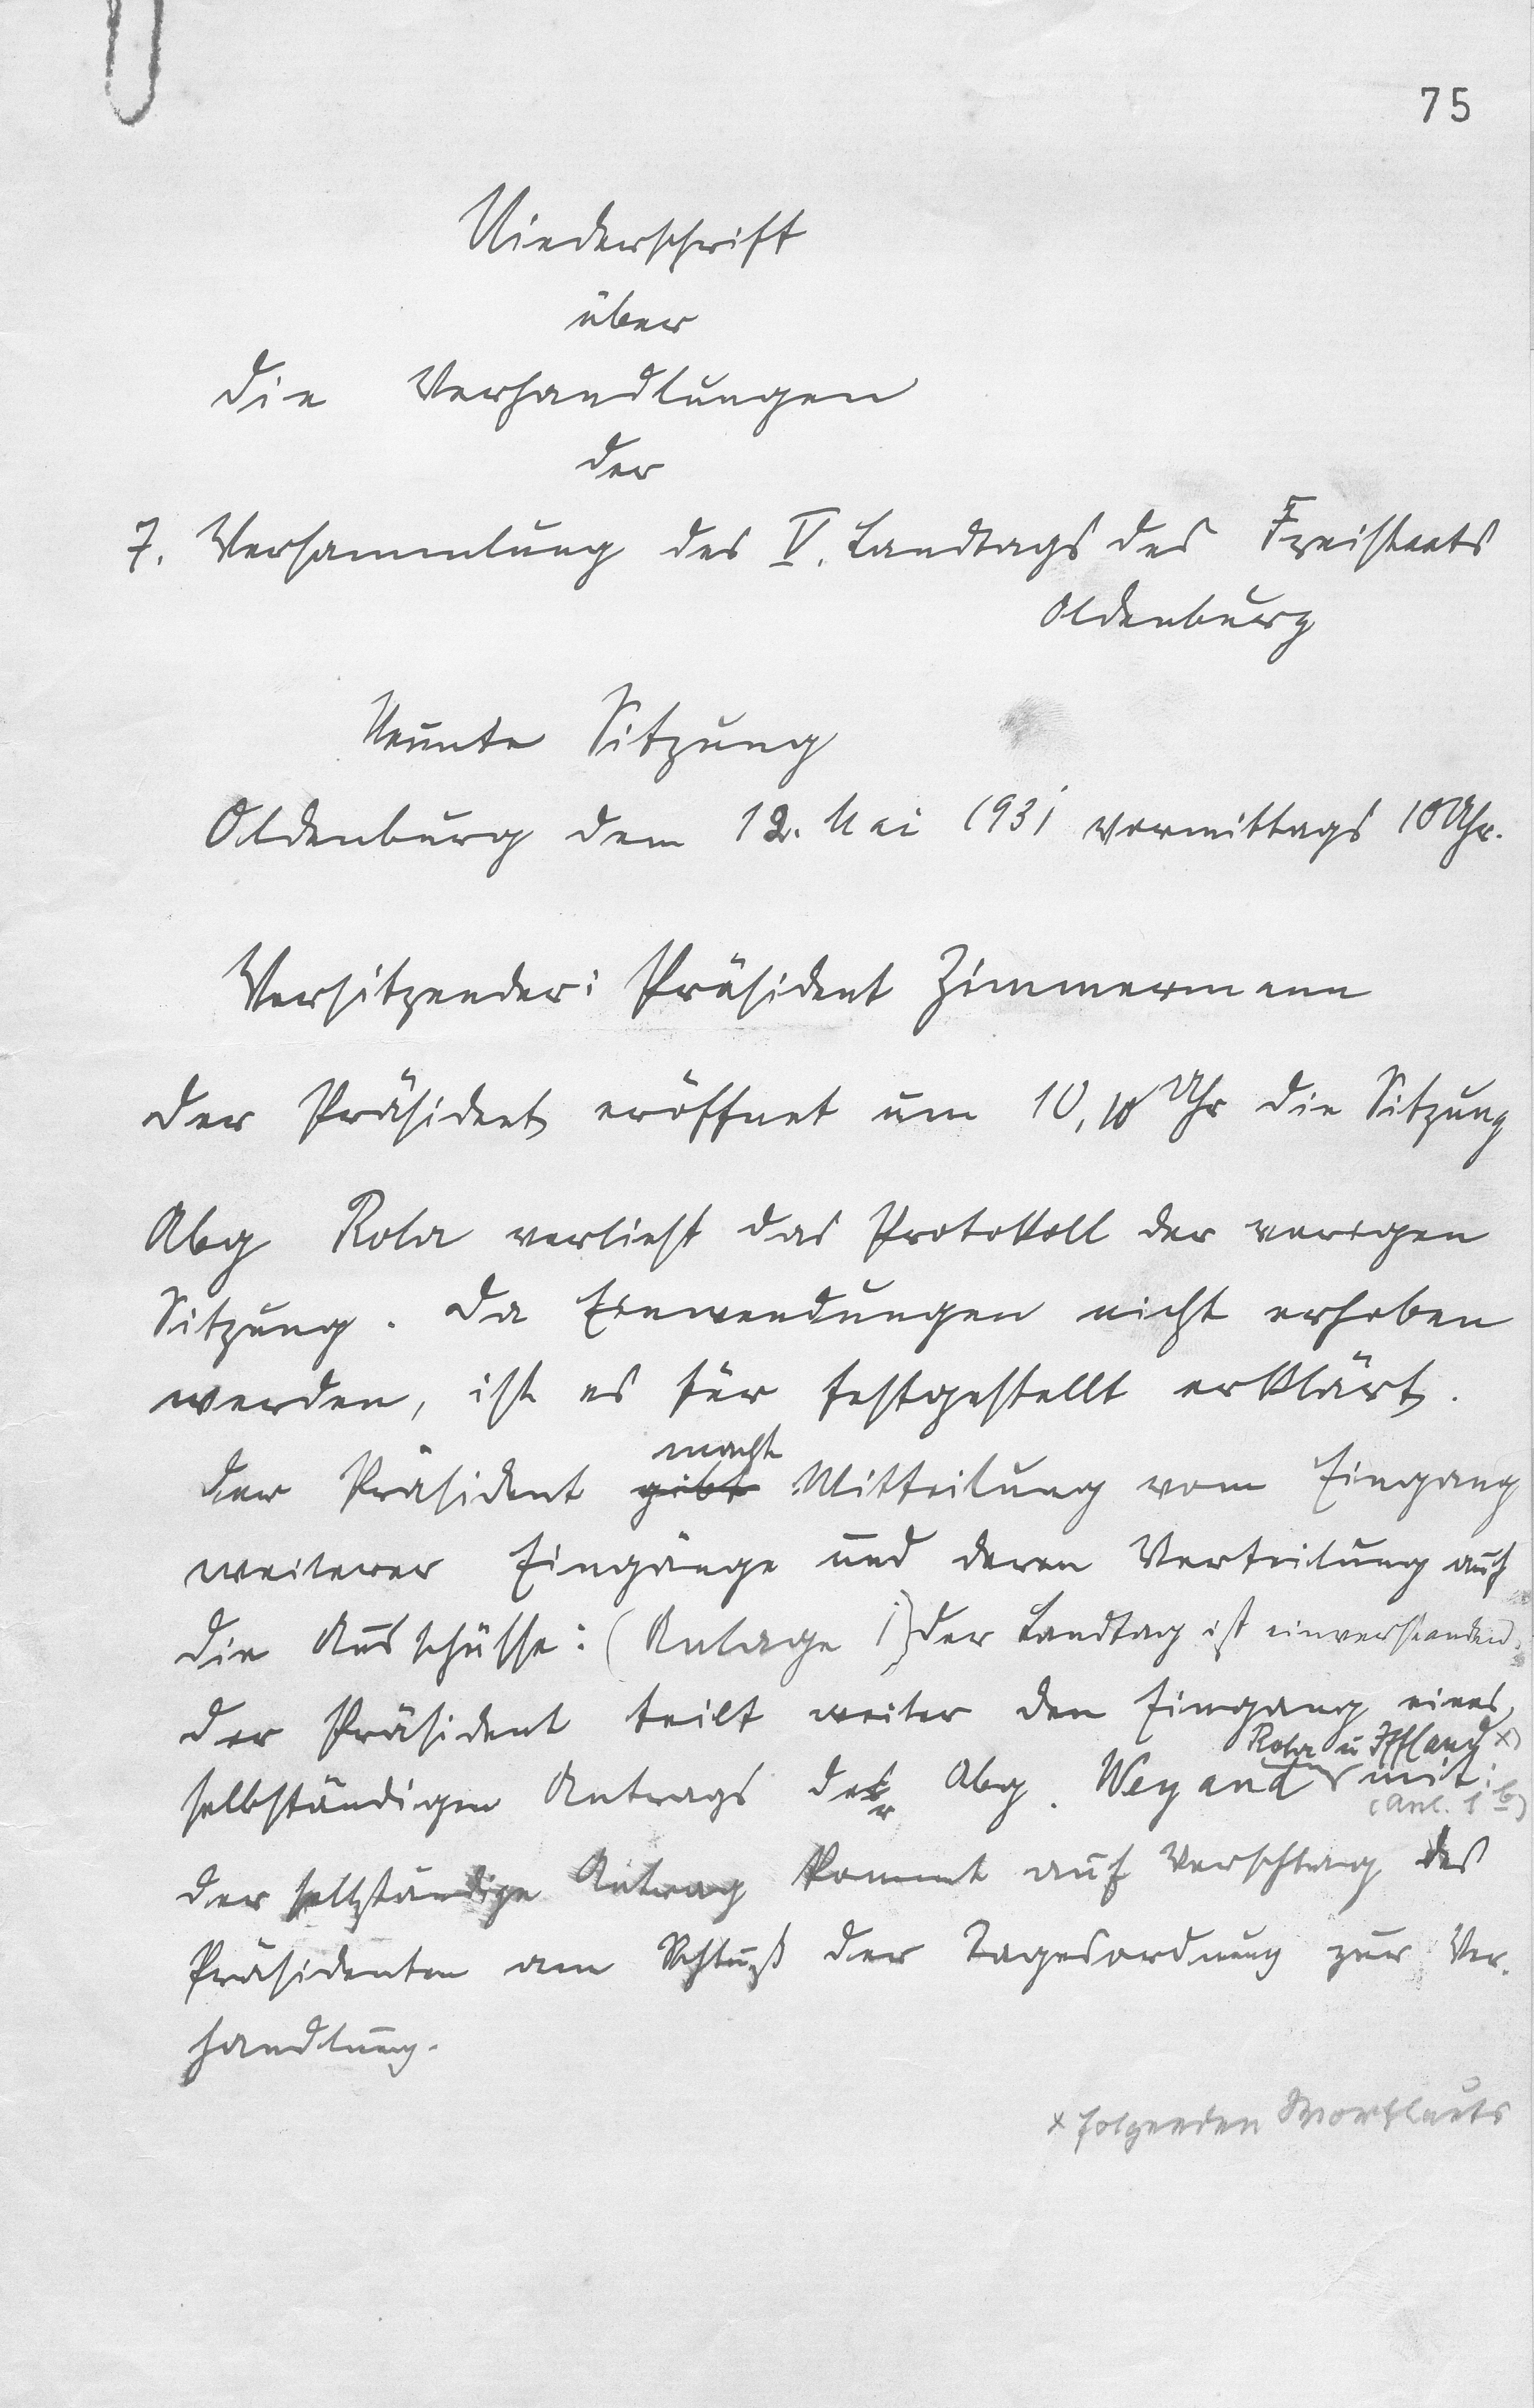 75
Niederschrift
über
die Verhandlungen
der
7. Versammlung des V. Landtags des Freistaats
Oldenburg
Neunte Sitzung
Oldenburg dem 12. Mai 1931 vormittags 10 Uhr.
Vorsitzender: Präsident Zimmermann
Der Präsident eröffnet um 10,10 Uhr die Sitzung
Abg Rola verliest das Protokoll der vorigen
Sitzung. Da Einwendungen nicht erhoben
werden, ist es für festgestellt erklärt.
macht
Der Präsident gibt Mitteilung vom Eingang
weiterer Eingänge und deren Verteilung auf
die Ausschüsse: (Anlage 1) Der Landtag ist einverstanden.
Der Präsident teilt weiter den Eingang eines
Rola u Iffland x)
selbständigen Antrags der Abg. Weyand mit:
(Anl. 1 b)
Der selbständige Antrag kommt auf Vorschlag des
Präsidenten am Schluß der Tagesordnung zur Ver-
handlung.
x folgenden Wortlauts